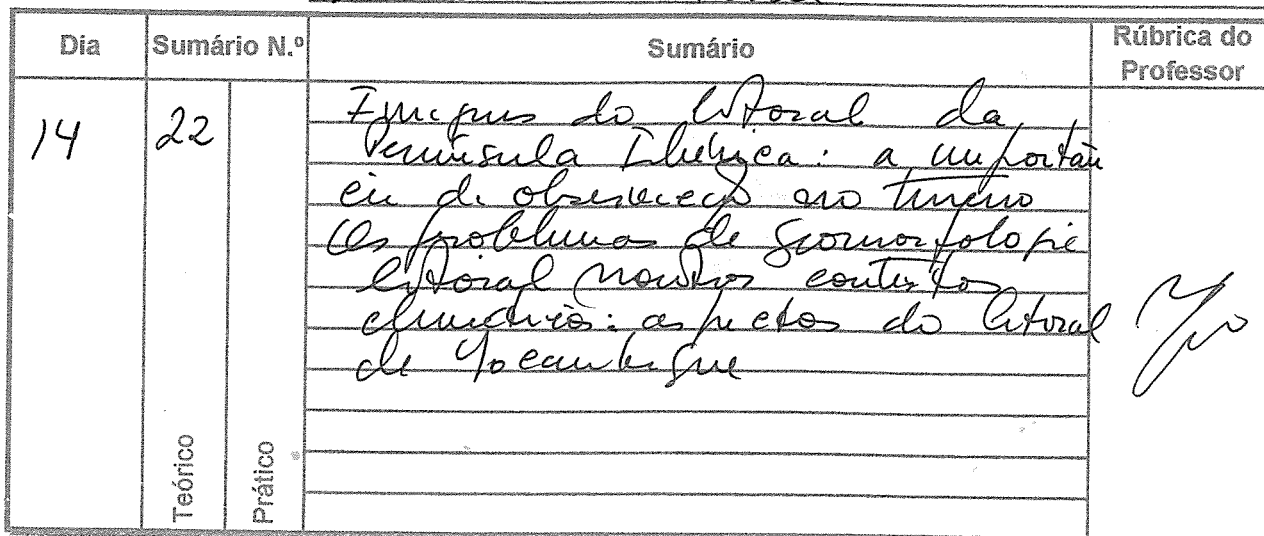 Dia
Sumário N.º
Sumário
Rúbrica do
Professor
14
22
Imagens do litoral da
Península Ibérica: a importân
cia da observação no terreno
Os problemas de Geomorfologia
litoral noutros contextos
climáticos: aspectos do litoral
de Moçambique
Teórico
Prático